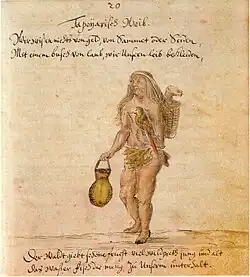 20
Tapoyarisch Weib.
Wir wißen nichts von geld, von Sammet oder Seiden,
Mit einem busch von laub, wir Unsern leib bekleiden,
Der Waldt giebt schöne frucht viel wildprett jung und alt
das Waßer fisch die meng, zu Unserm unterhalt.